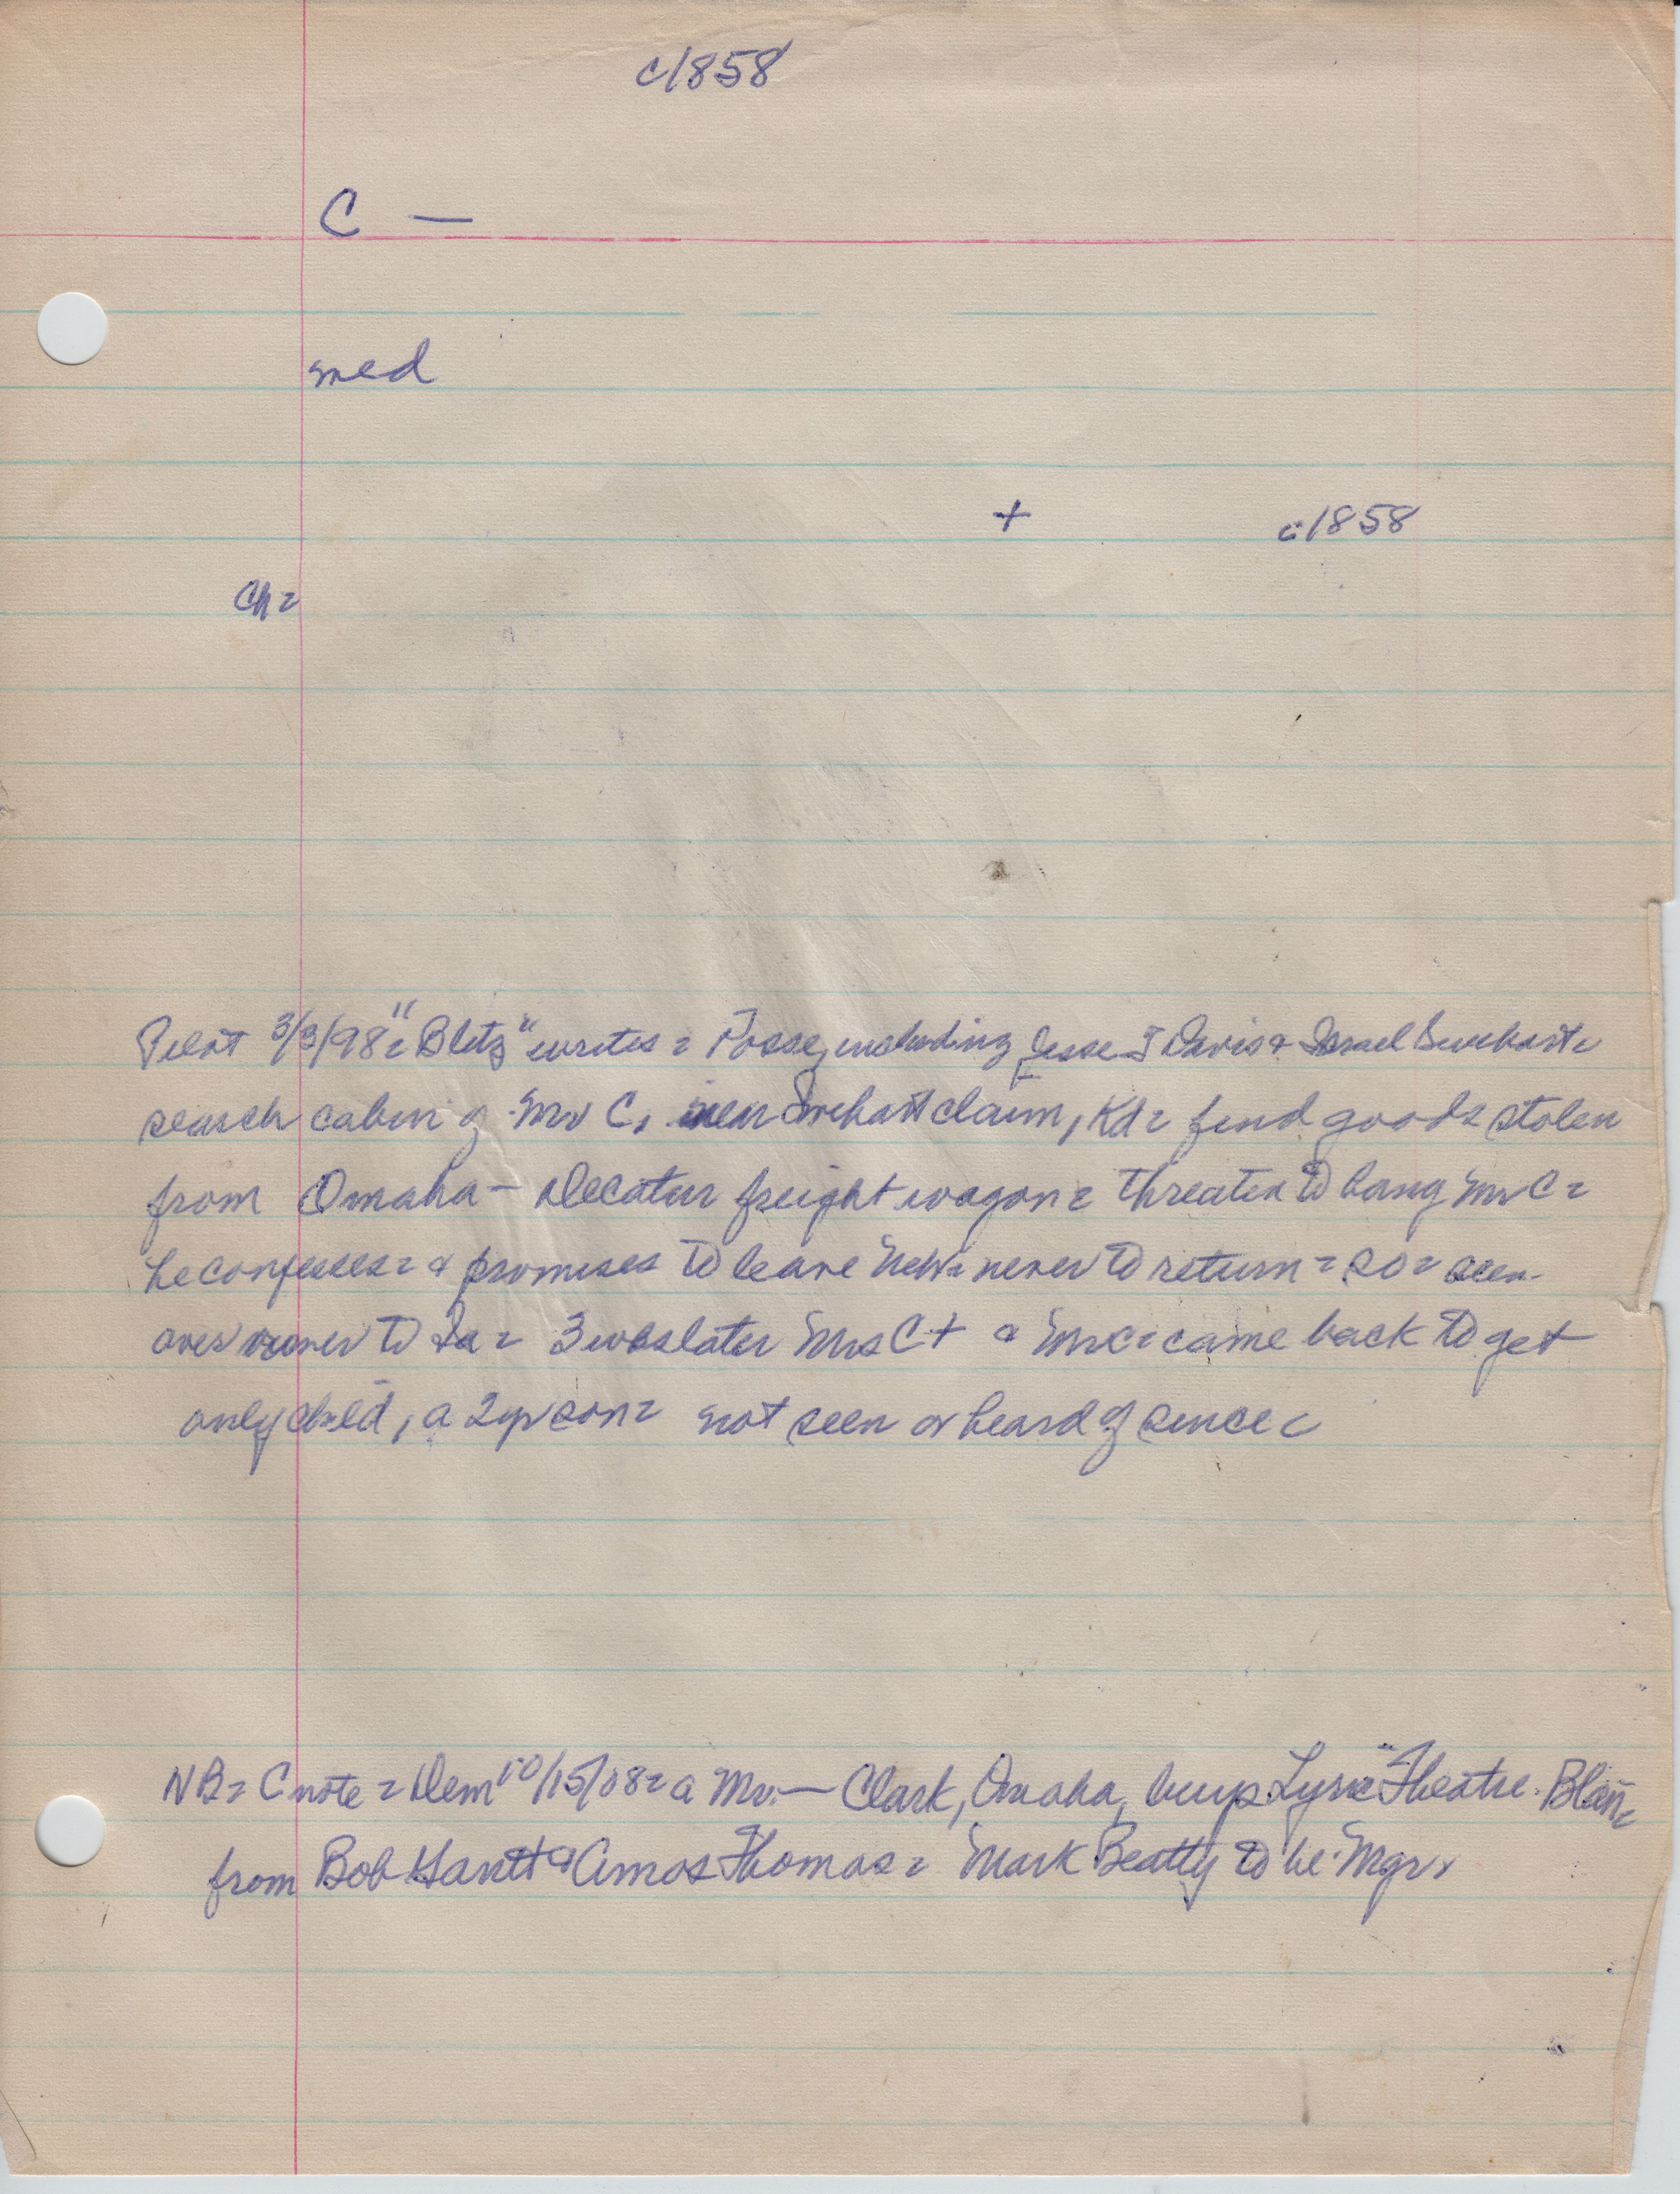 c1858
C —
med
+ c1858
Ch =
Pilot 3/3/98 = "Blitz" writes = Posse, including Jesse T Davis & Israel Swihart =
search cabin of Mr C, near Swihart claim, Kd = find goods stolen
from Omaha - Decatur freight wagon = threaten to hang Mr C =
he confesses = & promises to leave Neb = never to return = so = seen
over river to Ia = 3 wks later Mrs C + & Mr C = came back to get
only child, a 2 yr son = not seen or heard of since =
NB = C note = Dem 10/15/08 = a Mr. — Clark, Omaha, buys "Lyric" Theatre Blair =
from Bob & Amos Thomas = Mark Beatty to be Mgr.